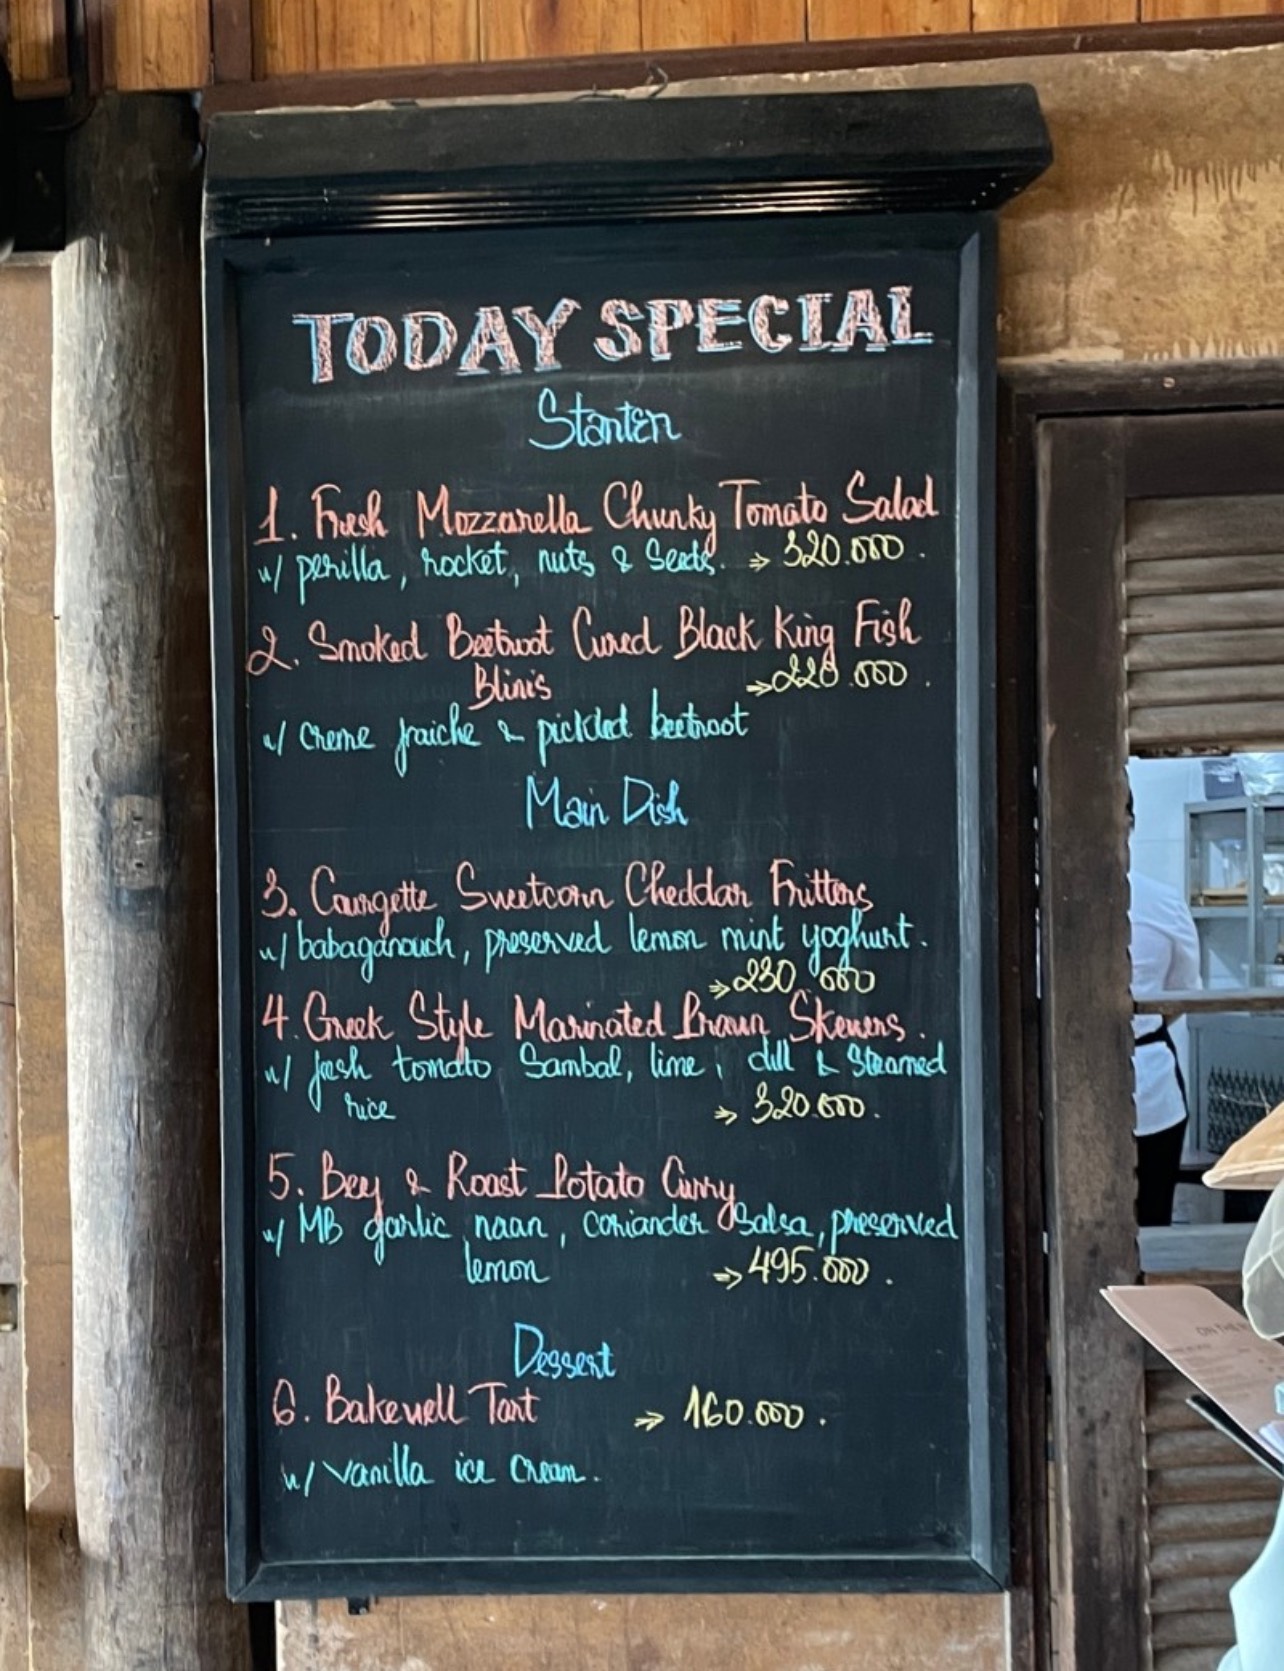 TODAY SPECIAL
Starter
1. Fresh Mozzarella Chunky Tomato Salad
w/ perilla, rocket, nuts & Seeds. => 320.000.
2. Smoked Beetroot Cured Black King Fish
Blinis => 220.000.
w/ creme fraiche & pickled beetroot
Main Dish
3. Courgette Sweetcorn Cheddar Fritters
w/ babaganouch, preserved lemon mint yoghurt.
=> 230.000
4. Greek Style Marinated Prawn Skewers.
w/ fresh tomato Sambal, lime, dill & Steamed
rice => 320.000.
5. Beef & Roast Potato Curry
w/ MB garlic naan, coriander Salsa, preserved
lemon => 495.000.
Dessert
6. Bakewell Tart => 160.000.
w/ vanilla ice cream.
ON THE